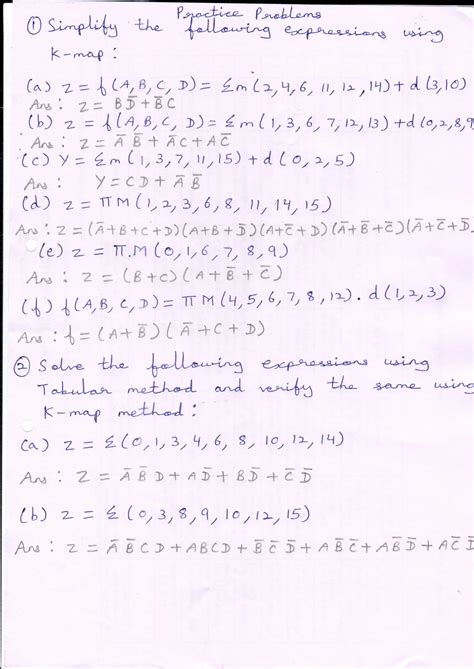 Practice Problems
① Simplify the following expressions using
K-map :
(a) z = f(A, B, C, D) = Σm(2, 4, 6, 11, 12, 14) + d(3, 10)
Ans : z = BD̅ + B̅C
(b) z = f(A, B, C, D) = Σm(1, 3, 6, 7, 12, 13) + d(0, 2, 8, 9
Ans : z = A̅B̅ + A̅C + AC̅
(c) Y = Σm(1, 3, 7, 11, 15) + d(0, 2, 5)
Ans : Y = CD + A̅B̅
(d) z = πM(1, 2, 3, 6, 8, 11, 14, 15)
Ans : z = (A̅+B+C+D)(A+B+D̅)(A+C̅+D)(A̅+B̅+C̅)(A̅+C̅+D̅
(e) z = π.M(0, 1, 6, 7, 8, 9)
Ans : z = (B+C)(A+B̅+C̅)
(f) f(A, B, C, D) = πM(4, 5, 6, 7, 8, 12).d(1, 2, 3)
Ans : f = (A+B̅)(A̅+C+D)
② Solve the following expressions using
Tabular method and verify the same using
K-map method :
(a) z = Σ(0, 1, 3, 4, 6, 8, 10, 12, 14)
Ans : Z = A̅B̅D + AD̅ + BD̅ + C̅D̅
(b) z = Σ(0, 3, 8, 9, 10, 12, 15)
Ans : z = A̅B̅CD + ABCD + B̅C̅D̅ + AB̅C̅ + AB̅D̅ + AC̅D̅